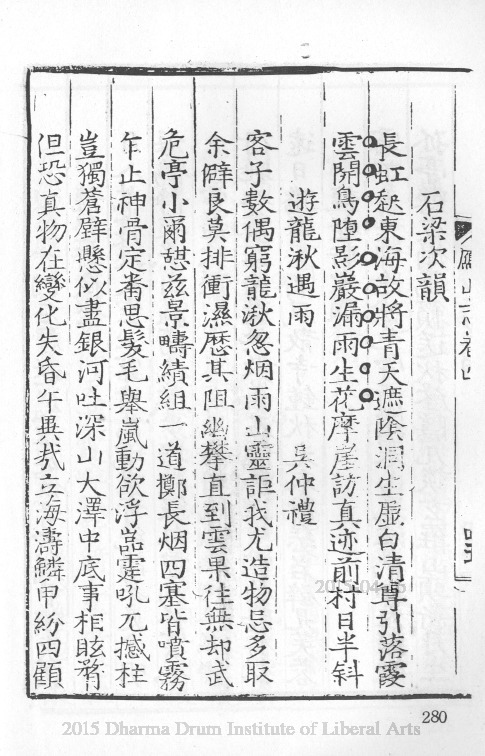 鴈山志卷四
石梁次韻
長虹愁東海故將青天遮陰洞生虛白清尊引落霞
雲開鳥墮彭巖漏雨生花摩崖訪真迹前村日半斜
遊龍湫遇雨 吳仲禮
客子數偶窮龍湫忽烟雨山靈詎我尤造物忌多取
余僻良莫排衝濕歷其阻幽攀直到雲果往無却武
危亭小爾憇茲景疇績組一道擲長烟四塞皆噴霧
乍止神骨定畨思髮毛舉嵐動欲浮嵓霆吼兀撼柱
豈獨蒼壁懸似盡銀河吐深山大澤中底事相眩
但恐真物在變化失昏午異哉立海濤鱗甲紛四顧
280
2015 Dharma Drum Institute of Liberal Arts